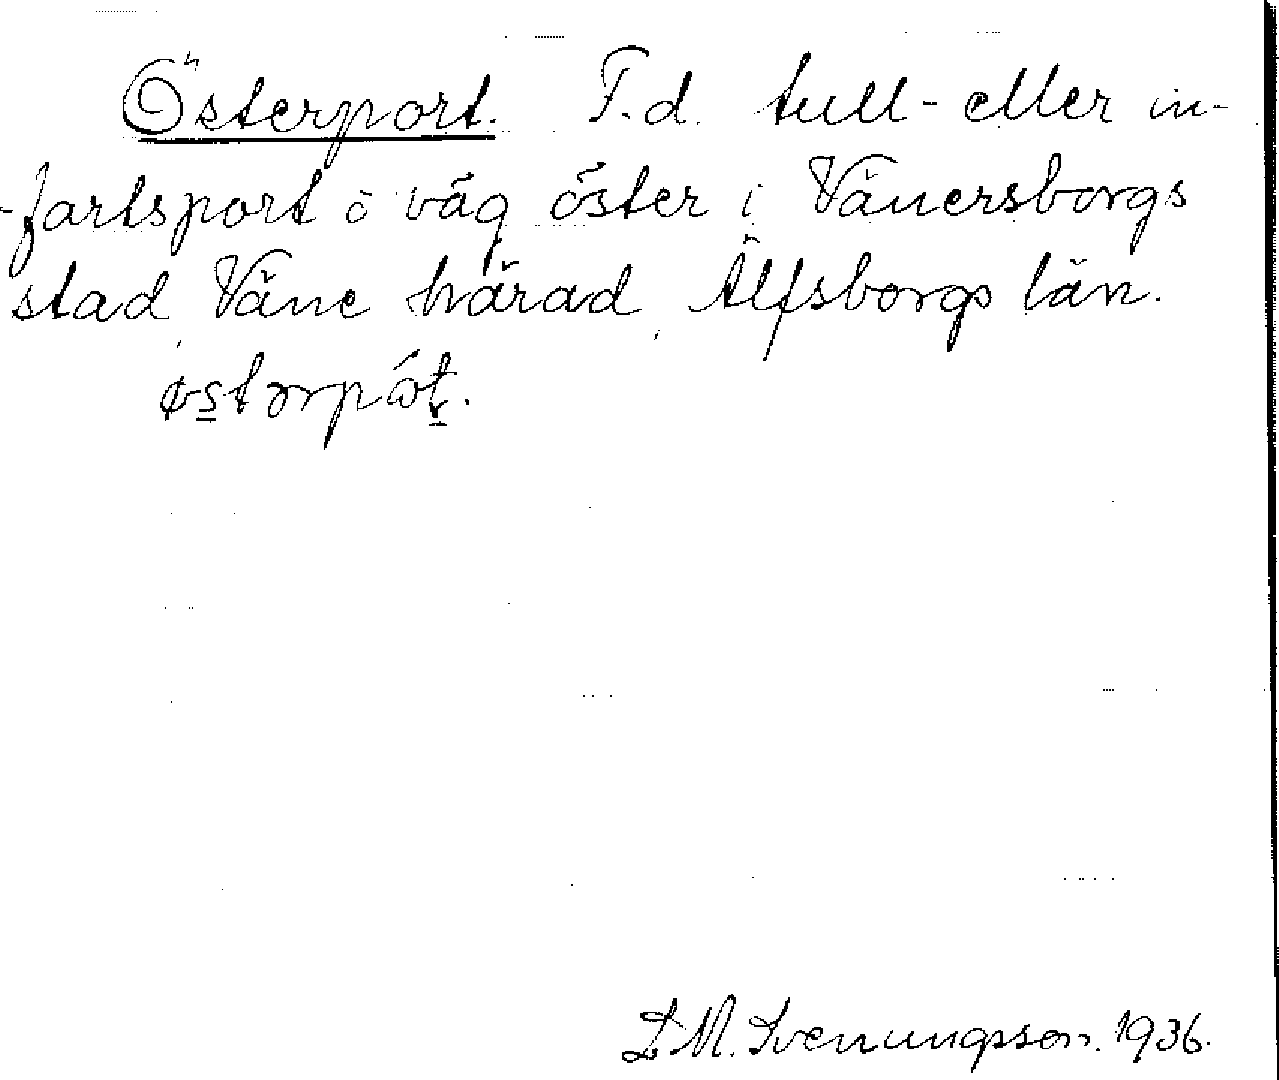 Österport. F.d. tull- eller in-
-fartsport å väg öster i Vänersborgs
stad, Väne härad, Älfsborgs län.
østərpǻt.
S. M. Svenungsson. 1936.